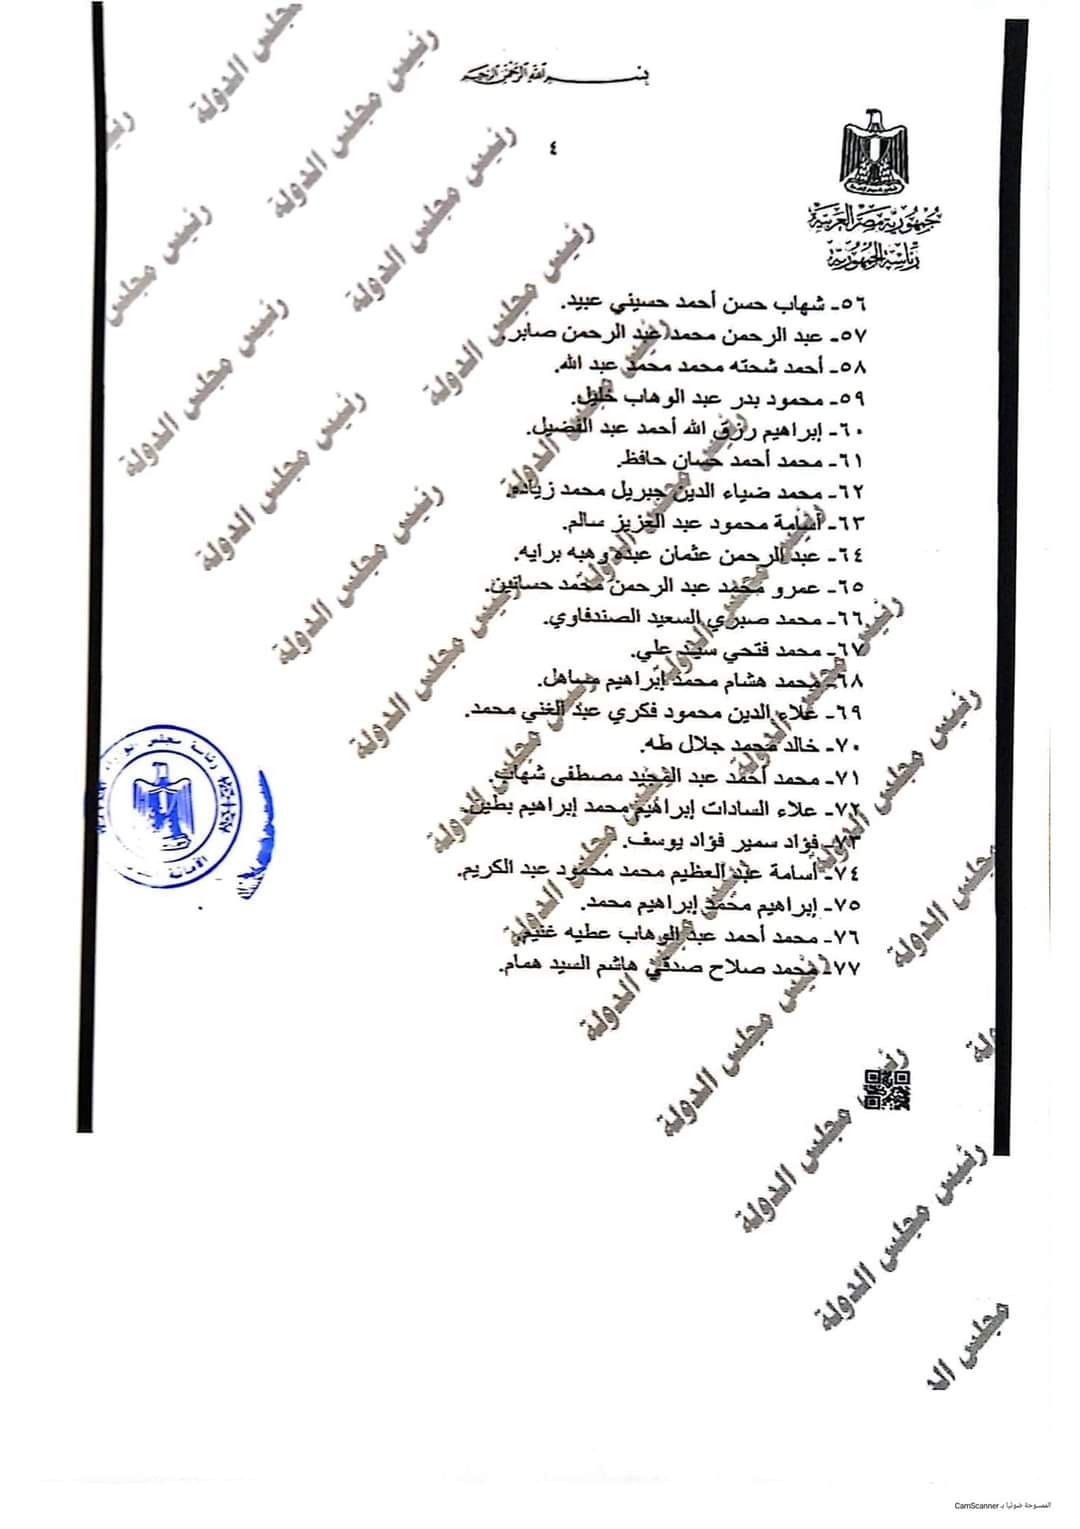 بسم الله الرحمن الرحيم
٤
جمهورية مصر العربية
رئاسة الجمهورية
٥٦- شهاب حسن أحمد حسيني عبيد.
٥٧- عبد الرحمن محمد عبد الرحمن صابر.
٥٨- أحمد شحته محمد محمد عبد الله.
٥٩- محمود بدر عبد الوهاب خليل.
٦٠- إبراهيم رزق الله أحمد عبد الفضيل.
٦١- محمد أحمد حسان حافظ.
٦٢- محمد ضياء الدين جبريل محمد زياده.
٦٣- أسامة محمود عبد العزيز سالم.
٦٤- عبد الرحمن عثمان عبده وهبه برايه.
٦٥- عمرو محمد عبد الرحمن محمد حسانين.
٦٦- محمد صبري السعيد الصندفاوي.
٦٧- محمد فتحي سيد علي.
٦٨- محمد هشام محمد إبراهيم مساهل.
٦٩- علاء الدين محمود فكري عبد الغني محمد.
٧٠- خالد محمد جلال طه.
٧١- محمد أحمد عبد المجيد مصطفى شهاب.
٧٢- علاء السادات إبراهيم محمد إبراهيم بطين.
٧٣- فؤاد سمير فؤاد يوسف.
٧٤- أسامة عبد العظيم محمد محمود عبد الكريم.
٧٥- إبراهيم محمد إبراهيم محمد.
٧٦- محمد أحمد عبد الوهاب عطيه غنيم.
٧٧- محمد صلاح صدقي هاشم السيد همام.
رئاسة مجلس الوزراء
الأمانة
رئيس مجلس الدولة
الممسوحة ضوئيا بـ CamScanner